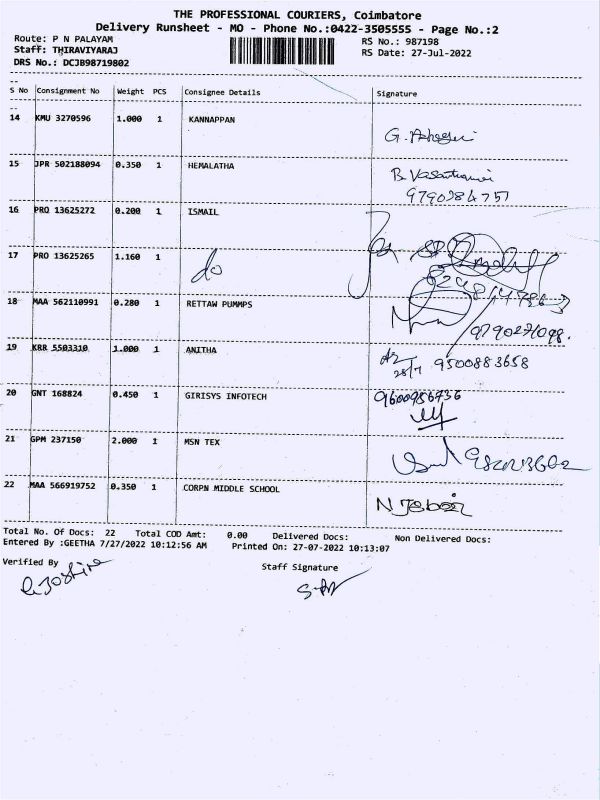 THE PROFESSIONAL COURIERS, Coimbatore
Delivery Runsheet - MO - Phone No.:0422-3505555 - Page No.:2
Route: P N PALAYAM RS No.: 987198
Staff: THIRAVIYARAJ RS Date: 27-Jul-2022
DRS No.: DCJB98719802
S No Consignment No Weight PCS Consignee Details Signature
14 KMU 3270596 1.000 1 KANNAPPAN
15 JPR 502188094 0.350 1 HEMALATHA
16 PRO 13625272 0.200 1 ISMAIL
17 PRO 13625265 1.160 1 do
18 MAA 562110991 0.280 1 RETTAW PUMMPS
19 KRR 5503310 1.000 1 ANITHA
28/7 9500883658
20 GNT 168824 0.450 1 GIRISYS INFOTECH 9600986736
21 GPM 237150 2.000 1 MSN TEX
22 MAA 566919752 0.350 1 CORPN MIDDLE SCHOOL
Total No. Of Docs: 22 Total COD Amt: 0.00 Delivered Docs: Non Delivered Docs:
Entered By :GEETHA 7/27/2022 10:12:56 AM Printed On: 27-07-2022 10:13:07
Verified By Staff Signature